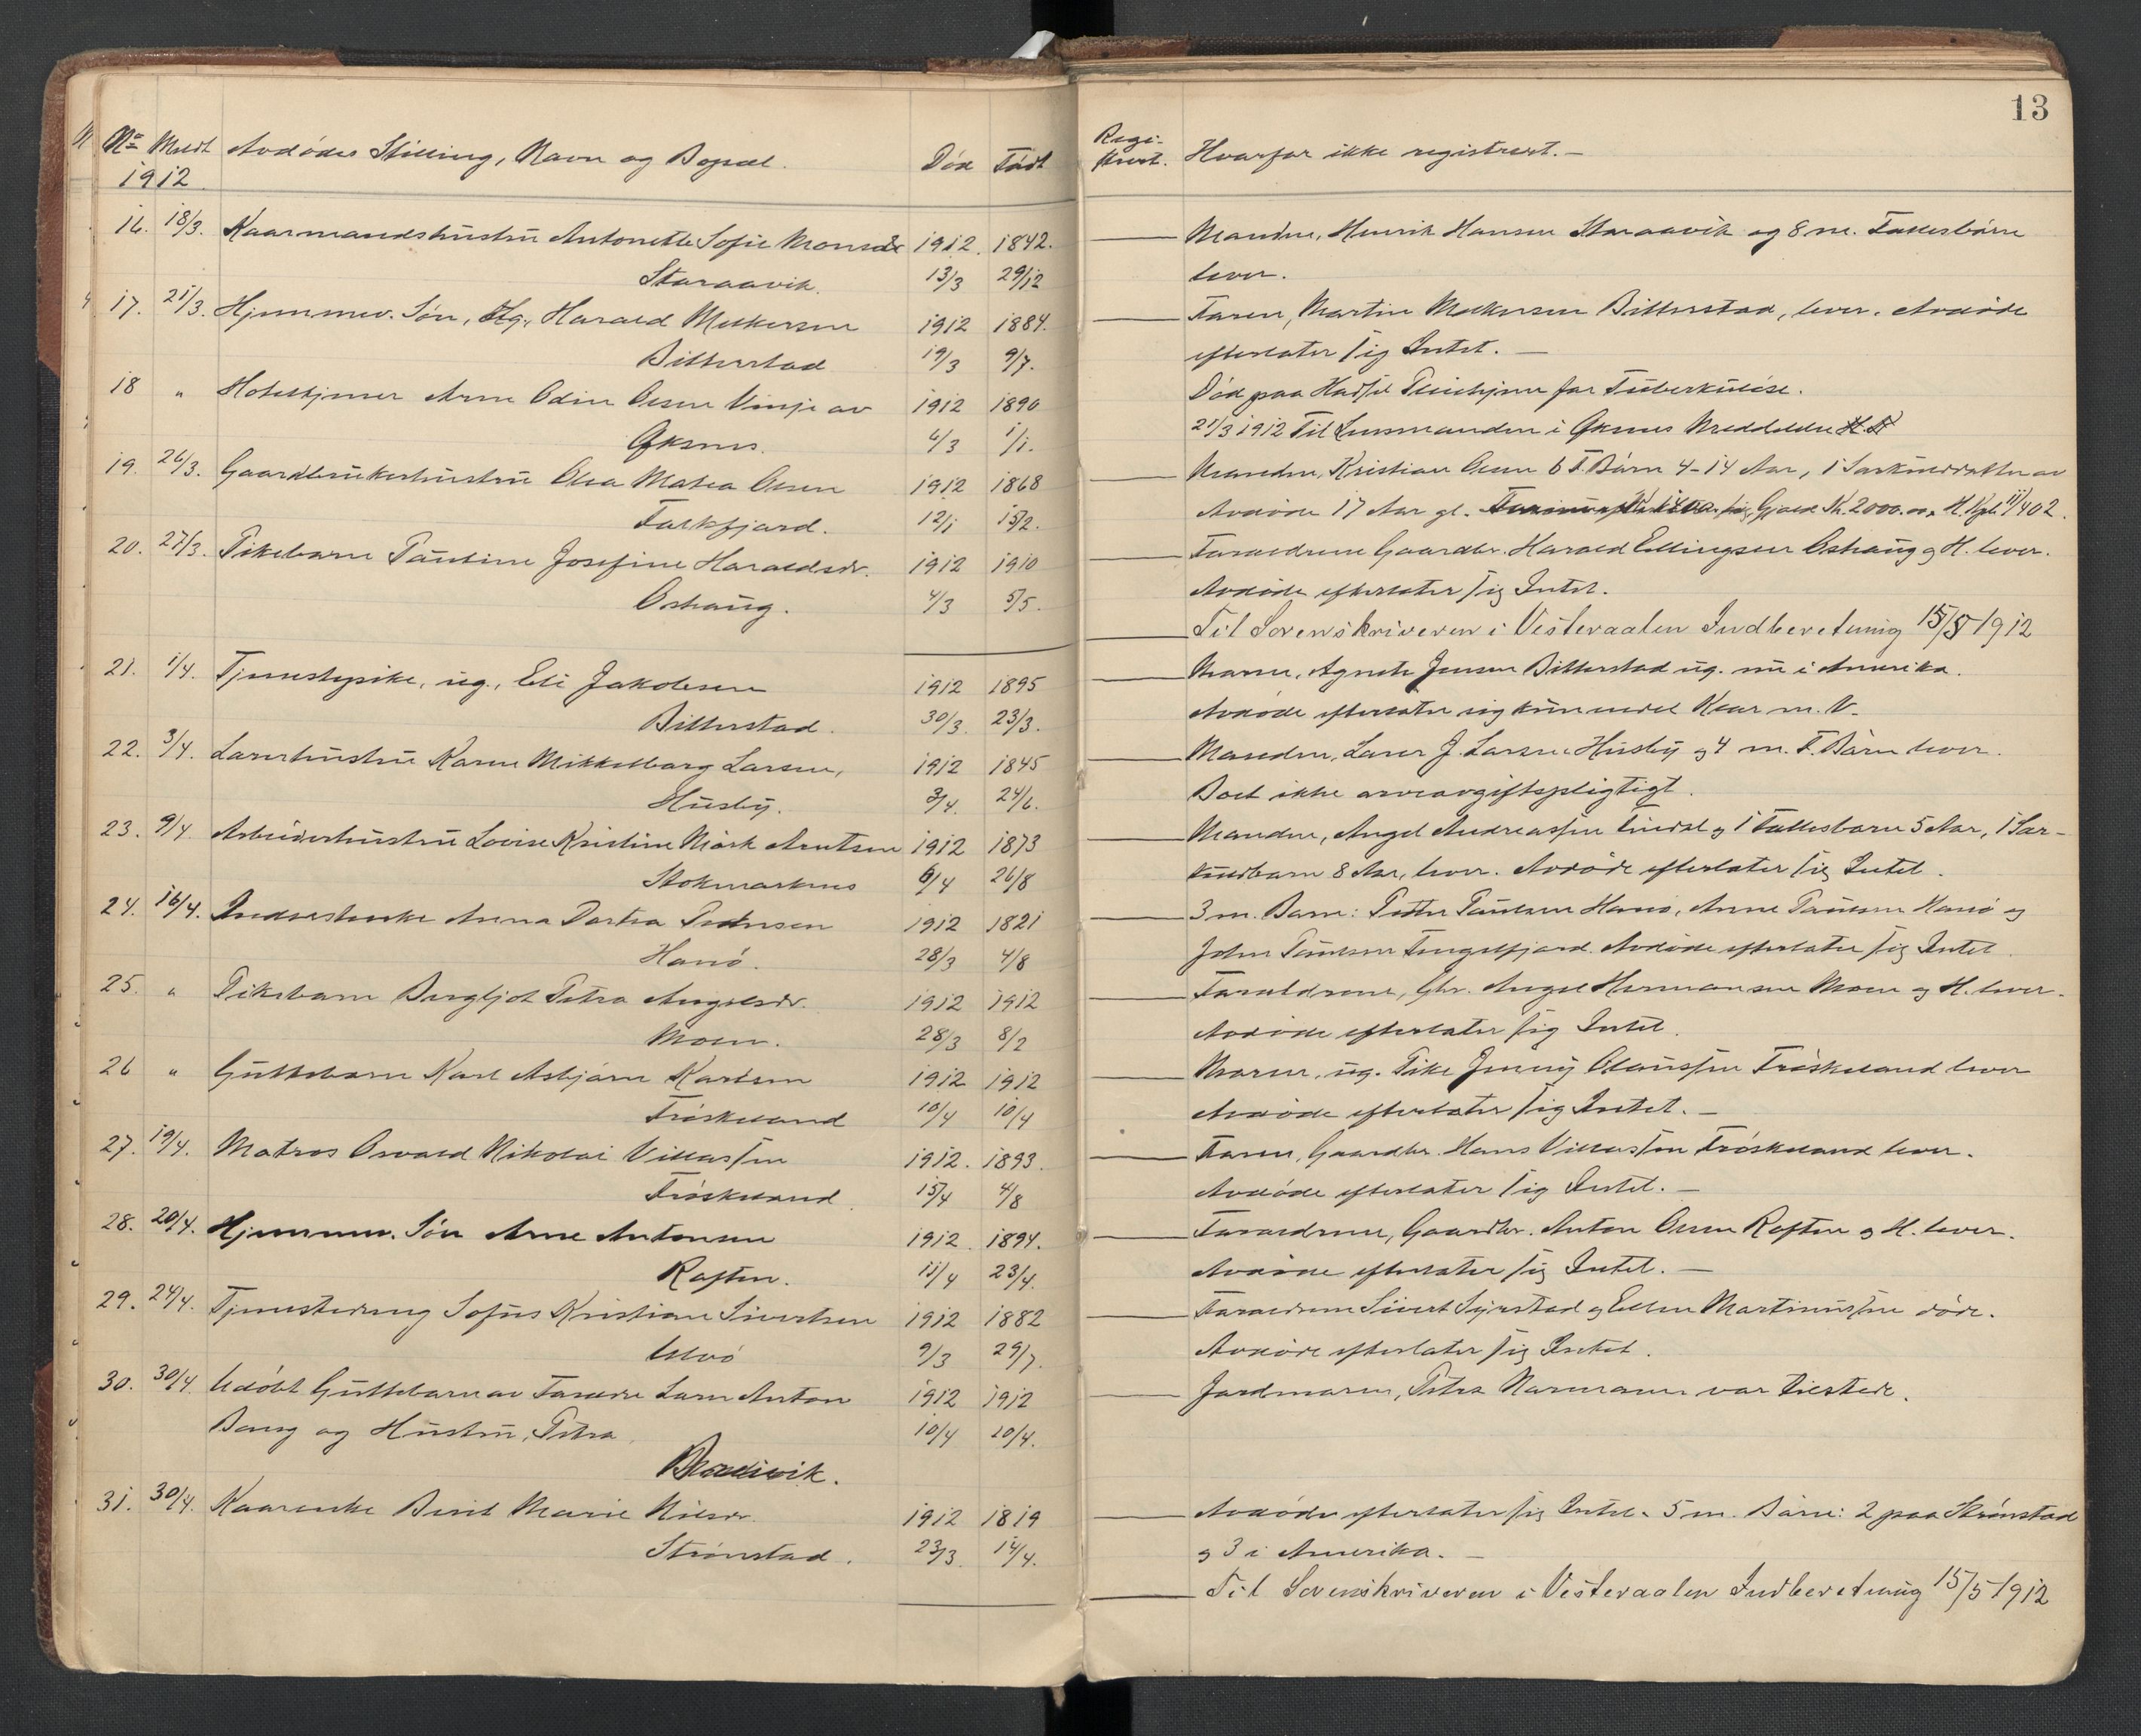 13
No Meldt Avdødes Stilling, Navn og Bopæl. Død Født Regi- Hvorfor ikke registrert.—
1912 strert.
16. 18/3. Kaarmandshustru Antonette Sofie Monsdr 1912. 1842. Manden, Henrik Hansen Staraavik og 8 m. Fællesbørn
Staraavik. 13/3 29/12 lever.
17. 21/3. Hjemmev. Søn, Ug., Harald Melkersen 1912 1884. Faren, Martin Melkersen Bitterstad, lever. Avdøde
Bitterstad 19/3 9/7. efterlater sig Intet.—
18 " Hotelltjener Arne Odin Olsen Vinje av 1912 1890 Død paa Hadsel Pleiehjem for Tuberkuløse.
Øksnes. 6/3 1/1. 21/3 1912 Til Lensmanden i Øksnes Meddelelse
19. 26/3. Gaardbrukerhustru Olea Matea Olsen 1912 1868 Manden, Kristian Olsen 6 F. Børn 4-14 Aar, 1 Særkuldsdatter av
Falkfjord. 12/1 15/2. Avdøde 17 Aar gl. Gjæld Kr. 2000.00, 11/4 02.
20. 27/3. Pikebarn Pauline Josefine Haraldsdr. 1912 1910 Forældrene Gaardbr. Harald Ellingsen Oshaug og H. lever.
Oshaug. 4/3 5/5. Avdøde efterlater sig Intet.
Til Sorenskriveren i Vesteraalen Indberetning 15/5 1912
21. 1/4. Tjenestepike, ug., Eli Jakobsen 1912 1895 Moren, Agnete Jensen Bitterstad ug. nu i Amerika.
Bitterstad. 30/3. 23/3. Avdøde efterlater sig kun endel Klær m. V.
22. 3/4. Lærerhustru Karen Mikkelborg Larsen, 1912 1845 Manden, Lærer J. Larsen Husby og 4 m. F. Børn lever.
Husby. 3/4. 24/6. Boet ikke arveavgiftspligtigt.
23. 9/4 Arbeiderhustru Lovise Kristine Mørk Arntsen 1912 1873 Manden, Angel Andreassen og 1 Fællesbarn 5 Aar, 1 Sær-
Stokmarknes 6/4 26/8 kuldbarn 8 Aar, lever. Avdøde efterlater sig Intet.
24. 16/4. Indsesterenke Anna Dortea Pedersen 1912 1821 3 m. Barn: Peder Paulsen Hanø, Arne Paulsen Hanø og
Hanø. 28/3 4/8 John Paulsen Fengelfjord. Avdøde efterlater sig Intet.
25. " Pikebarn Bergljot Petra Angelsdr. 1912 1912 Forældrene, Gbr. Angel Hermansen Moen og H. lever.
Moen. 28/3 8/2 Avdøde efterlater sig Intet.
26 " Guttebarn Karl Asbjørn Karlsen 1912 1912 Moren, ug. Pike Jenny Olaussen Frøskeland lever
Frøskeland 10/4 10/4 Avdøde efterlater sig Intet.—
27. 19/4. Matros Osvald Nikolai Villassen 1912. 1893. Faren, Gaardbr. Hans Villassen Frøskeland lever.
Frøskeland. 15/4 4/8 Avdøde efterlater sig Intet.—
28. 20/4. Hjemmev. Søn Arne Antonsen 1912. 1894. Forældrene, Gaardbr. Anton Olsen Raften og H. lever.
Raften. 11/4 23/4. Avdøde efterlater sig Intet.—
29. 24/4. Tjenestedreng Sofus Kristian Sivertsen 1912 1882 Forældrene Sivert Synstad og Ellen Martinussen døde.
Ulvø 9/3 29/7. Avdøde efterlater sig Intet.
30. 30/4. Udøbt Guttebarn av Forældre Lars Anton 1912 1912 Jordmoren, Petra Normann var tilstede.
Berg og Hustru, Petra 10/4 10/4.
31. 30/4. Kaarenke Berit Marie Nilsdr. 1912 1819 Avdøde efterlater sig Intet. 5 m. Børn: 2 paa Strønstad
Strønstad. 23/3. 14/4. og 3 i Amerika.—
Til Sorenskriveren i Vesteraalen Indberetning 15/5 1912